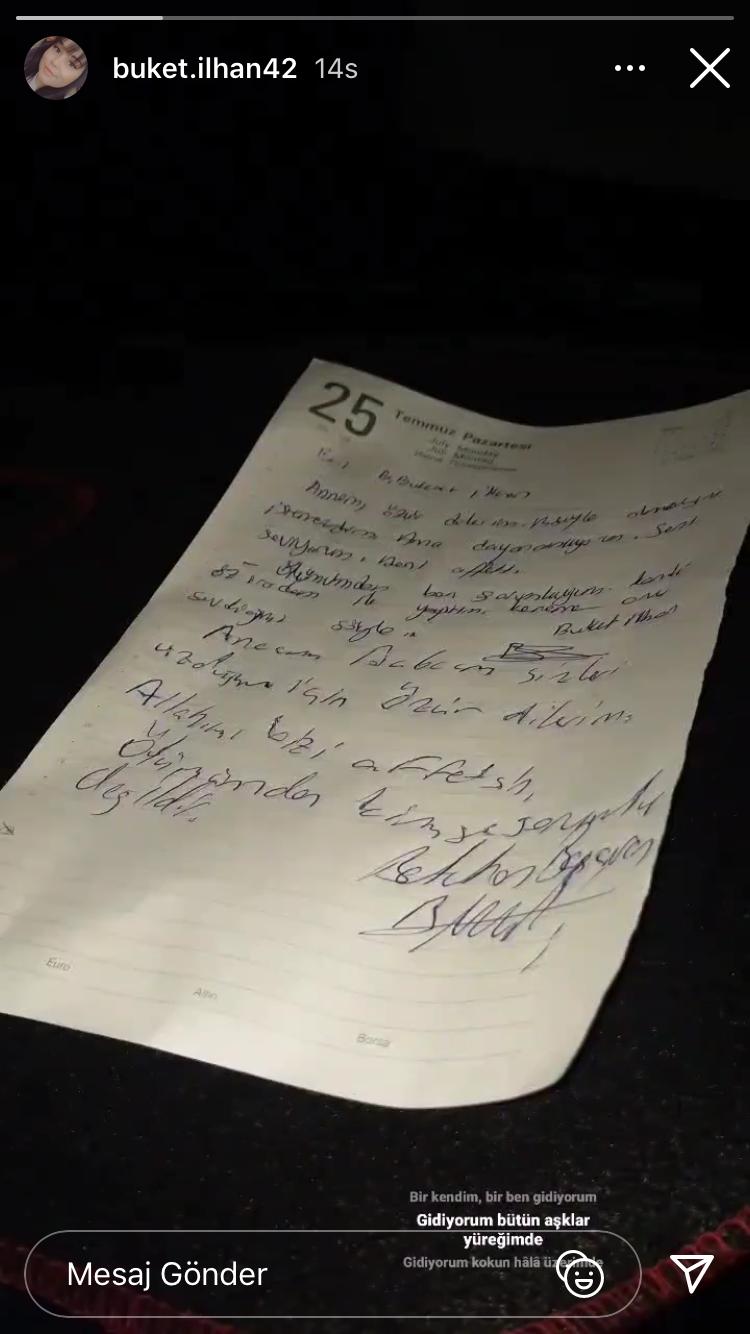 buket.ilhan42 14s
25 Temmuz Pazartesi
July Monday
Juli Montag
Ben Buket ilhan
Annem, özür dilerim. böyle olmasını
istemezdim Ama dayanamıyorum. Seni
seviyorum. Beni affet.
Ölümümden ben sorumluyum kendi
öz iradem ile yaptım. kereme onu
sevdiğimi söyle
Buket ilhan
Anecam Babam sizleri
üzdüğüm için özür dilerim.
Allahım bizi affetsin,
Ölümümden kimse sorumlu
değildir.
Euro Altın Borsa
Bir kendim, bir ben gidiyorum
Gidiyorum bütün aşklar
yüreğimde
Gidiyorum kokun hâlâ üzerimde
Mesaj Gönder